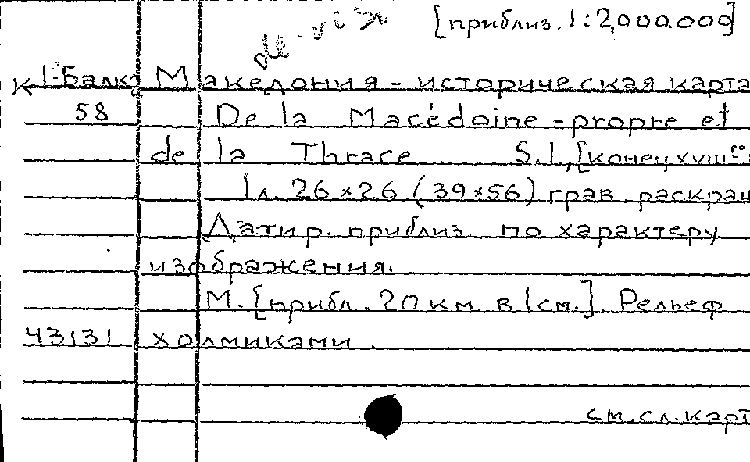 [приблиз. 1:2,000.000]
de-visu
К 1-Балк Македония - историческая карта
58 De la Macédoine-propre et
de la Thrace S.l., [конец XVIII
1л. 26×26 (39×56) грав. раскраш
Датир. приблиз. по характеру
изображения.
М. [прибл. 20 км в 1 см.]. Рельеф
43131 холмиками.
см. сл. карт